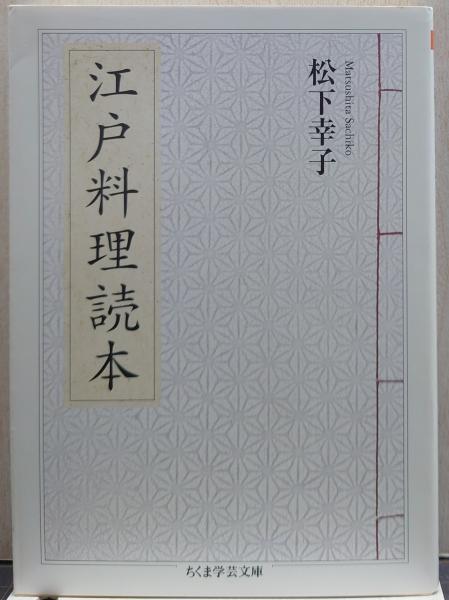 江戸料理読本
松下幸子
Matsushita Sachiko
ちくま学芸文庫